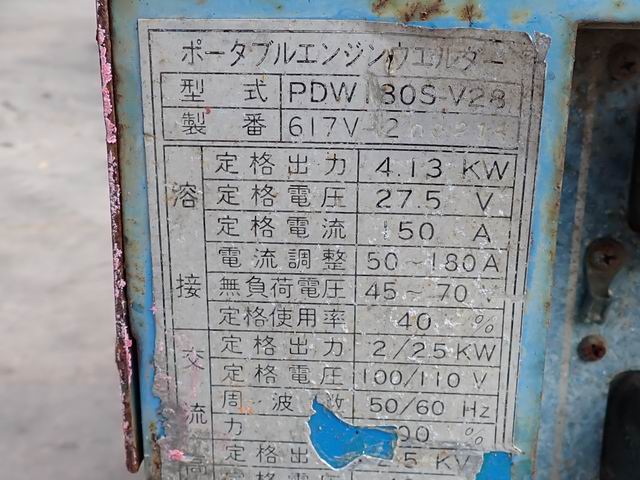 ポータブルエンジンウエルダー
型式 PDW180S-V28
製番 617V-2
溶接 定格出力 4.13 KW
定格電圧 27.5 V
定格電流 150 A
電流調整 50~180A
無負荷電圧 45~70 V
定格使用率 40 %
交流 定格出力 2/2.5KW
定格電圧 100/110 V
周波数 50/60 Hz
力 %
定格出 .5 KV